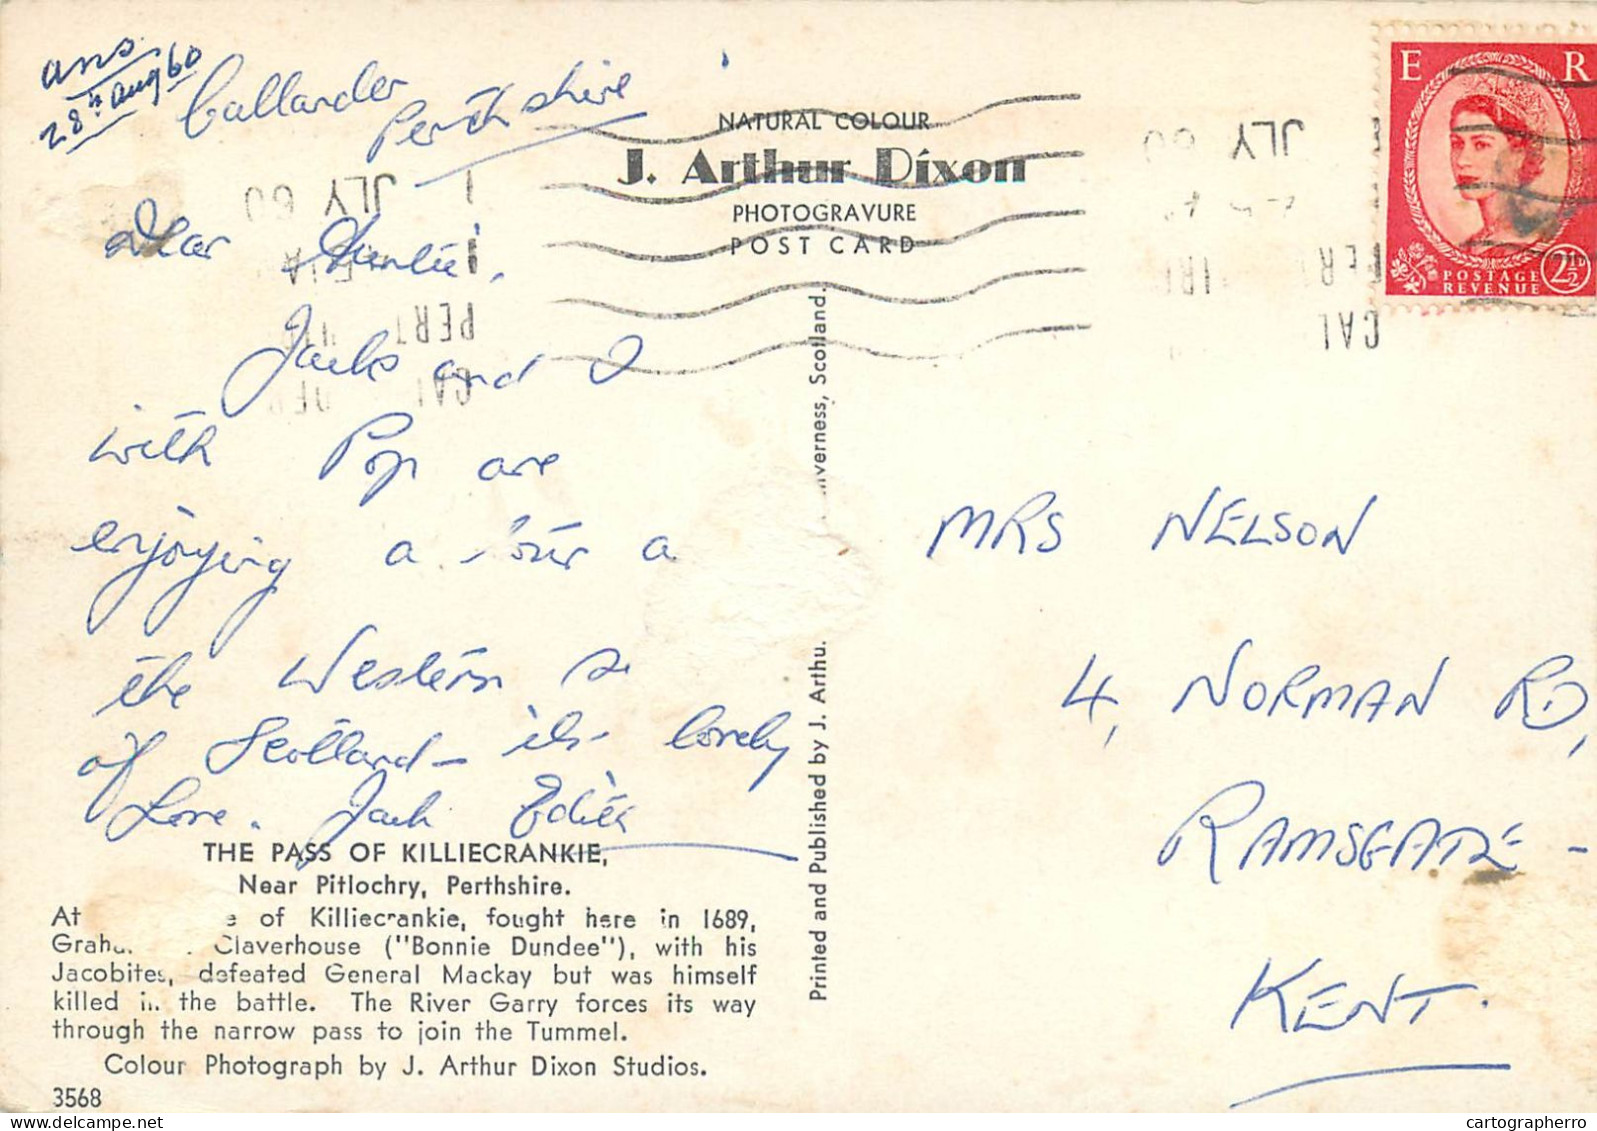 ans
28th Aug 60
Callander
Perthshire
Dear Auntie,
Jack and I
with Pop are
enjoying a tour a
the Western
of Scotland - its lovely
Love. Jack Edith
THE PASS OF KILLIECRANKIE,
Near Pitlochry, Perthshire.
At of Killiecrankie, fought here in 1689,
Claverhouse ("Bonnie Dundee"), with his
Jacobites, defeated General Mackay but was himself
killed in the battle. The River Garry forces its way
through the narrow pass to join the Tummel.
Colour Photograph by J. Arthur Dixon Studios.
3568
NATURAL COLOUR
J. Arthur Dixon
PHOTOGRAVURE
POST CARD
Printed and Published by J. Arthu. nverness, Scotland.
JLY 60
PERT
CAL
JLY 60
PER
CAL
E R
POSTAGE
REVENUE
2½D
MRS NELSON
4, NORMAN RD,
RAMSGATE -
KENT.
cartographerro